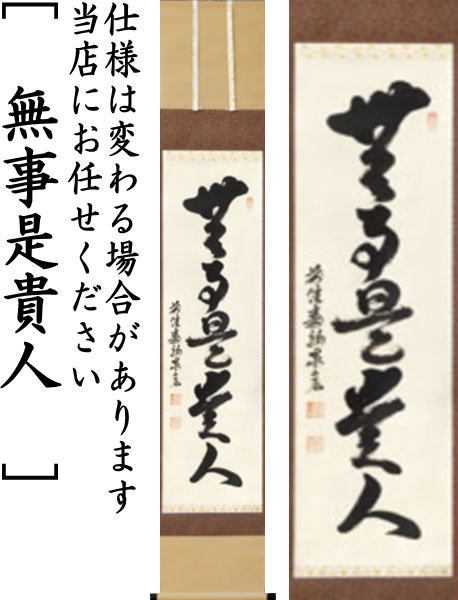 仕様は変わる場合があります
当店にお任せください
［無事是貴人］
無事是貴人
無事是貴人